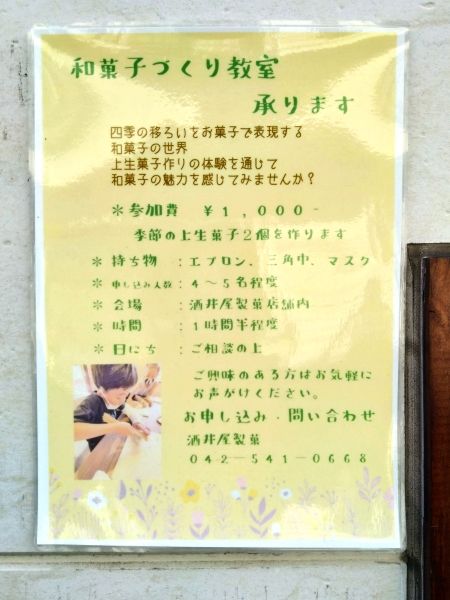 和菓子づくり教室
承ります
四季の移ろいをお菓子で表現する
和菓子の世界
上生菓子作りの体験を通じて
和菓子の魅力を感じてみませんか?
*参加費 ¥1,000-
季節の上生菓子2個を作ります
* 持ち物 :エプロン、三角巾、マスク
* 申し込み人数 :4～5名程度
* 会場 :酒井屋製菓店舗内
* 時間 :1時間半程度
* 日にち :ご相談の上
ご興味のある方はお気軽に
お声がけください。
お申し込み・問い合わせ
酒井屋製菓
042-541-0668